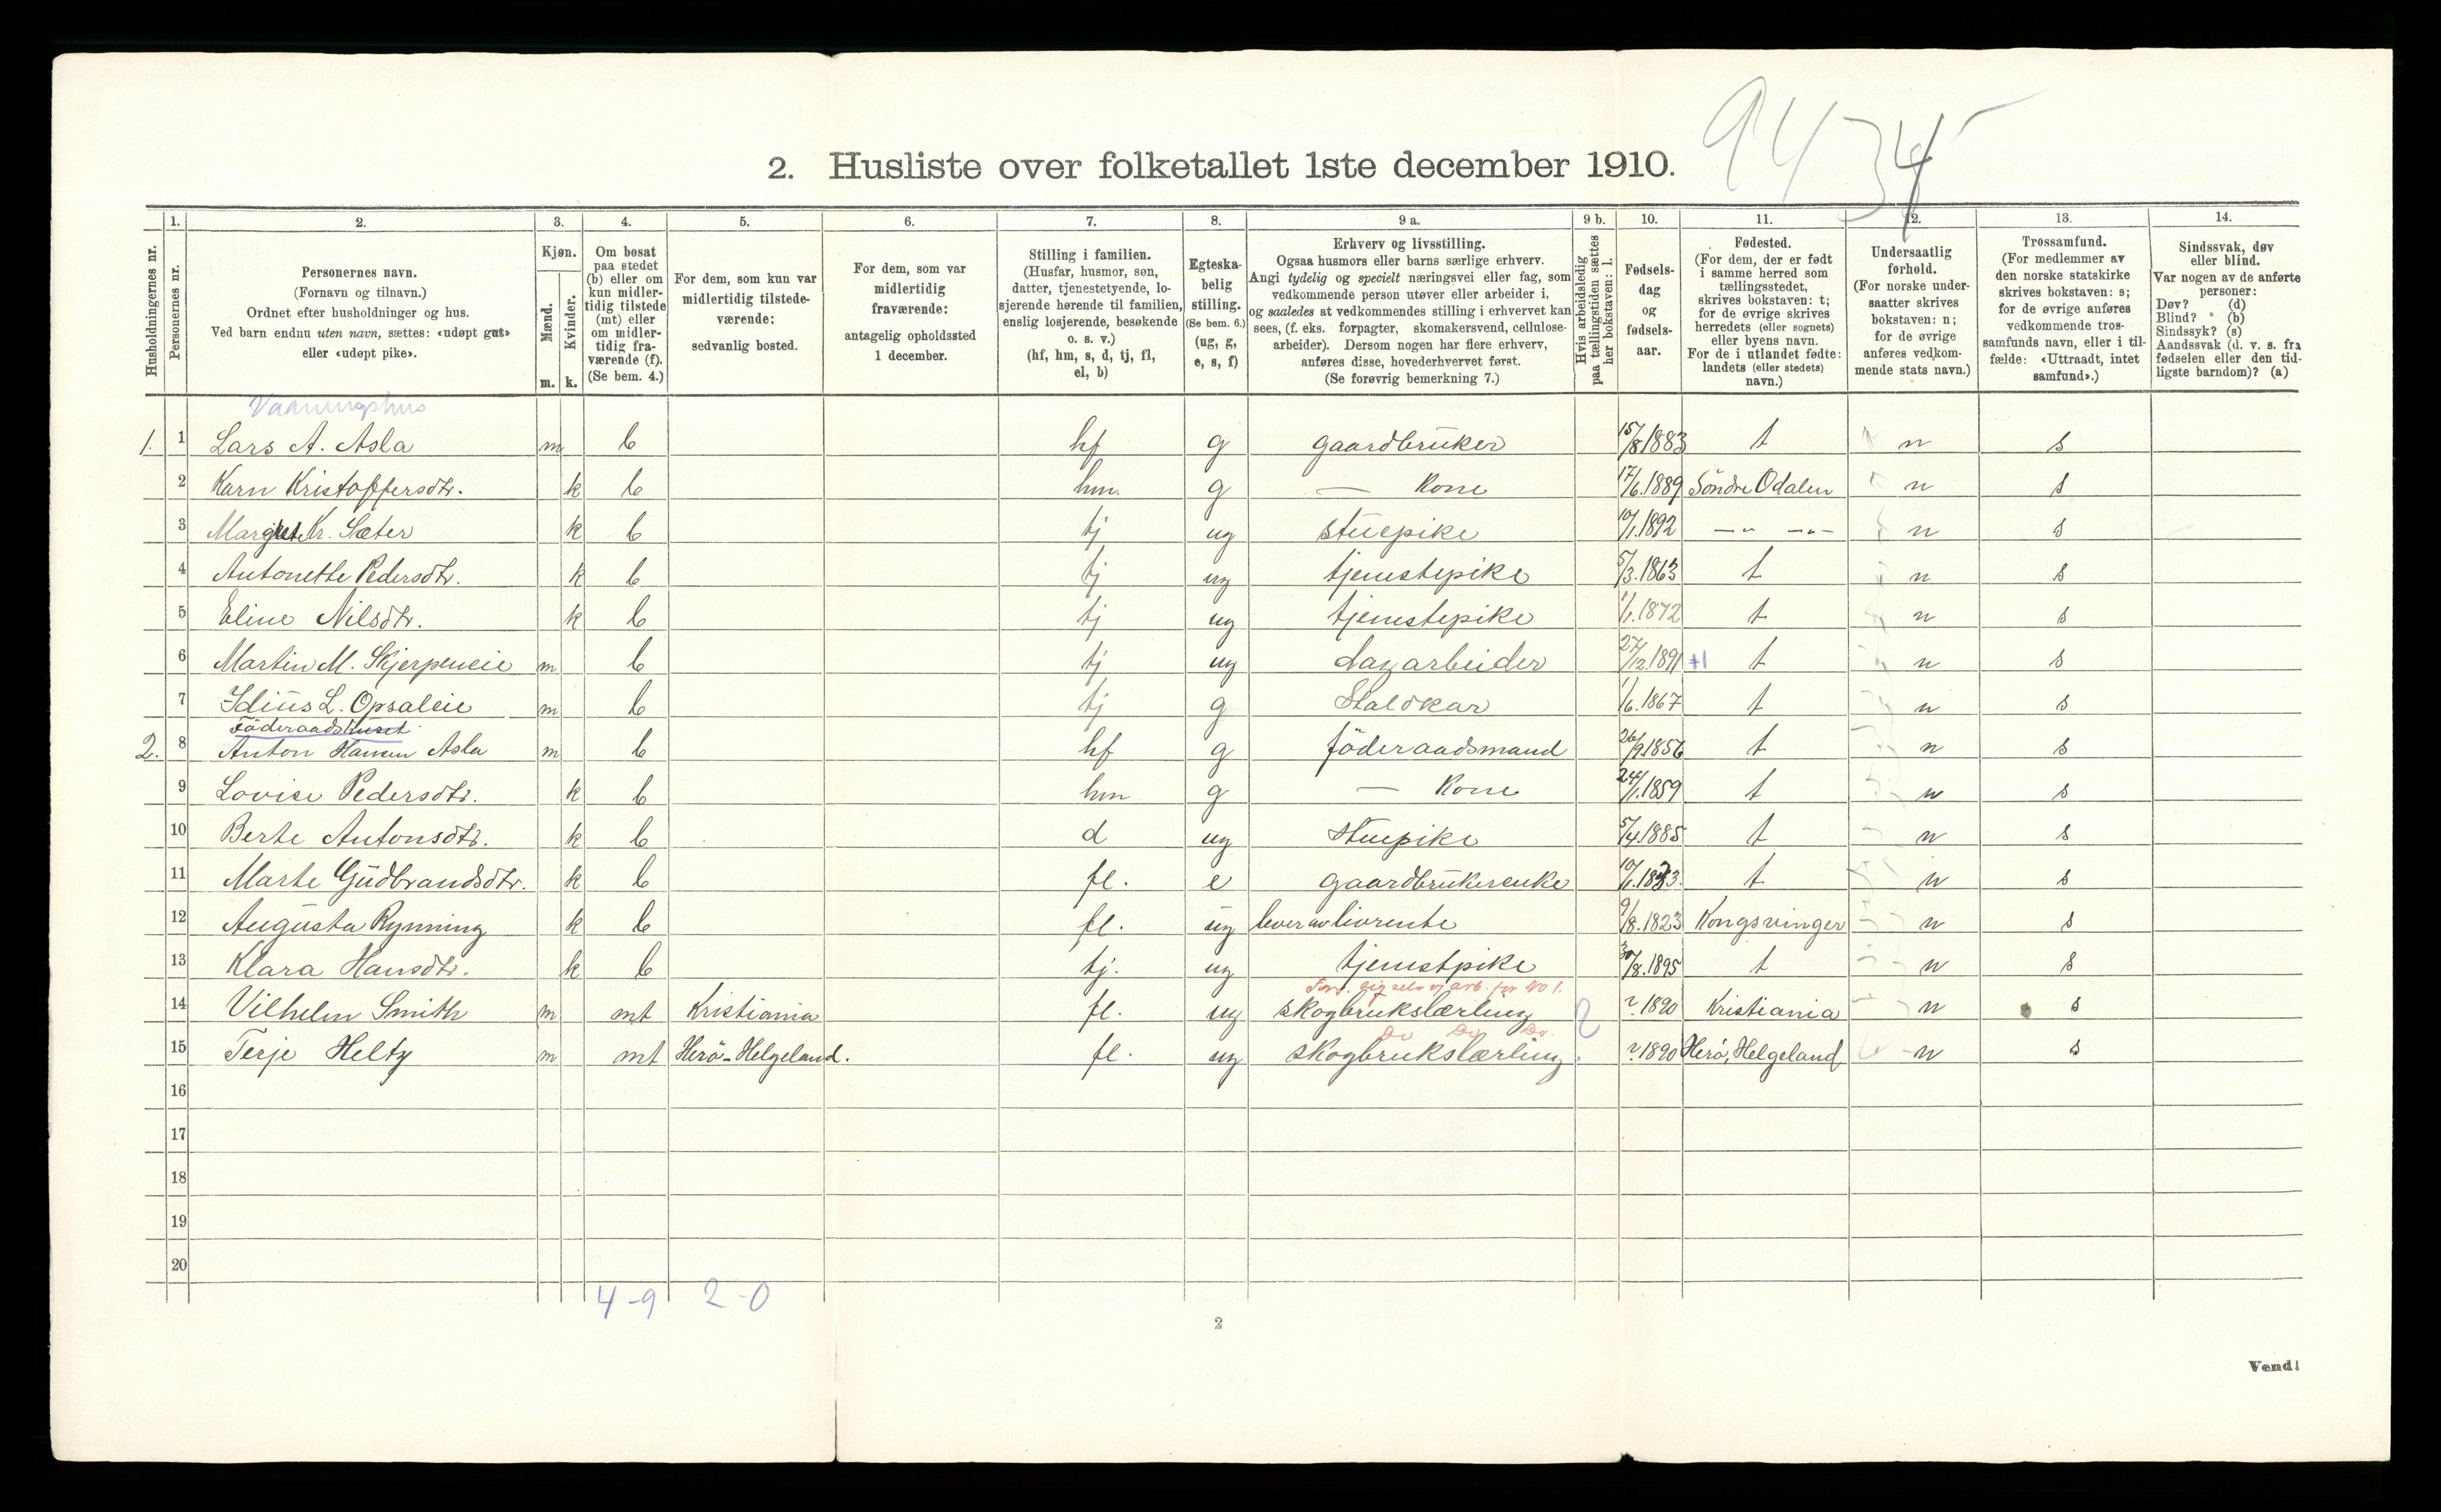 9434
2. Husliste over folketallet 1ste december 1910.
Husholdningernes nr.
1. Personernes nr.
2. Personernes navn. (Fornavn og tilnavn.) Ordnet efter husholdninger og hus. Ved barn endnu uten navn, sættes: «udøpt gut» eller «udøpt pike».
3. Kjøn. Mænd. m. Kvinder. k.
4. Om bosat paa stedet (b) eller om kun midlertidig tilstede (mt) eller om midlertidig fraværende (f). (Se bem. 4.)
5. For dem, som kun var midlertidig tilstedeværende: sedvanlig bosted.
6. For dem, som var midlertidig fraværende: antagelig opholdssted 1 december.
7. Stilling i familien. (Husfar, husmor, søn, datter, tjenestetyende, losjerende hørende til familien, enslig losjerende, besøkende o. s. v.) (hf, hm, s, d, tj, fl, el, b)
8. Egteskabelig stilling. (Se bem. 6.) (ug, g, e, s, f)
9 a. Erhverv og livsstilling. Ogsaa husmors eller barns særlige erhverv. Angi tydelig og specielt næringsvei eller fag, som vedkommende person utøver eller arbeider i, og saaledes at vedkommendes stilling i erhvervet kan sees, (f. eks. forpagter, skomakersvend, cellulosearbeider). Dersom nogen har flere erhverv, anføres disse, hovederhvervet først. (Se forøvrig bemerkning 7.)
9 b. Hvis arbeidsledig paa tællingstiden sættes her bokstaven: l.
10. Fødselsdag og fødselsaar.
11. Fødested. (For dem, der er født i samme herred som tællingsstedet, skrives bokstaven: t; for de øvrige skrives herredets (eller sognets) eller byens navn. For de i utlandet fødte: landets (eller stedets) navn.)
12. Undersaatlig forhold. (For norske undersaatter skrives bokstaven: n; for de øvrige anføres vedkommende stats navn.)
13. Trossamfund. (For medlemmer av den norske statskirke skrives bokstaven: s; for de øvrige anføres vedkommende trossamfunds navn, eller i tilfælde: «Uttraadt, intet samfund».)
14. Sindssvak, døv eller blind. Var nogen av de anførte personer: Døv? (d) Blind? (b) Sindssyk? (s) Aandssvak (d. v. s. fra fødselen eller den tidligste barndom)? (a)
Vaaningshus
1. 1 Lars A. Asla m b hf g gaardbruker 15/8 1883 t n s
2 Karn Kristoffersdtr. k b hm. g — Kone 17/6. 1889 Söndre Odalen n s
3 Margrete Kr. Sæter k b tj ug stuepike 10/1. 1892 —„— —„— n s
4 Antonette Pedersdtr. k b tj ug tjenestepike 5/3. 1863 t n s
5 Eline Nilsdtr. k b tj ug tjenestepike 1/1. 1872 t n s
6 Martin M. Skjerpeneie m b tj ug dagarbeider 27/12. 1891 t n s
7 Idius L. Opsaleie m b tj g Staldkar 1/6. 1867 t n s
Föderaadshuset
2. 8 Anton Hansen Asla m b hf g föderaadsmand 26/9 1856 t n s
9 Lovise Pedersdtr. k b hm g — Kone 24/1. 1859 t n s
10 Berte Antonsdtr. k b d ug stuepike 5/4. 1885 t n s
11 Marte Gudbrandsdtr. k b fl. e gaardbrukerenke t n s
12 Augusta Rynning k b fl. ug lever av livrente 9/8. 1823 Kongsvinger n s
13 Klara Hansdtr. k b tj. ug tjenestpike 30/8. 1895 t n s
sig selv arb. for No 1.
14 Vilhelm Smith m mt Kristiania fl. ug skogbrukslærling ? 1890 Kristiania n s
Do Do Do.
15 Terje Helty m mt Herö-Helgeland. fl. ug skogbrukslærling. ? 1890 Herö, Helgeland n s
16
17
18
19
20
4-9 2-0
2
Vend!